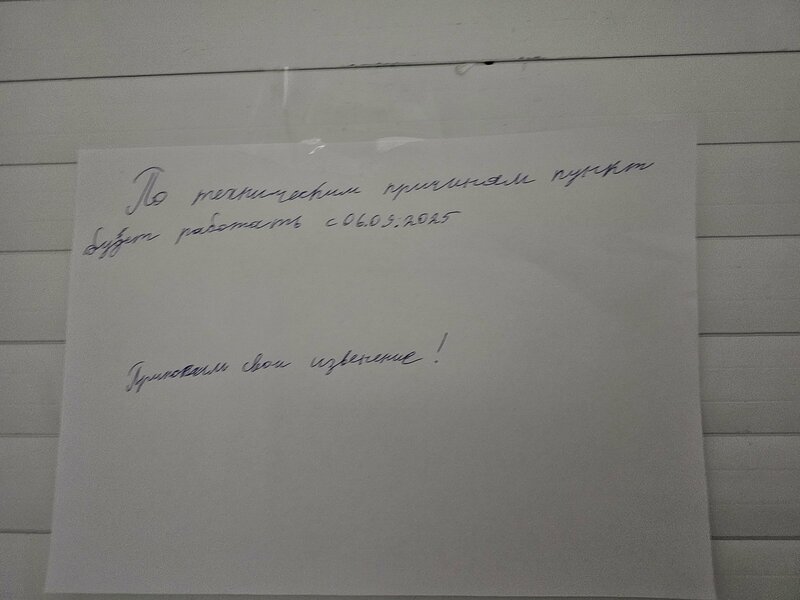 По техническим причинам пункт
будет работать с 06.09.2025
Приносим свои извенение!